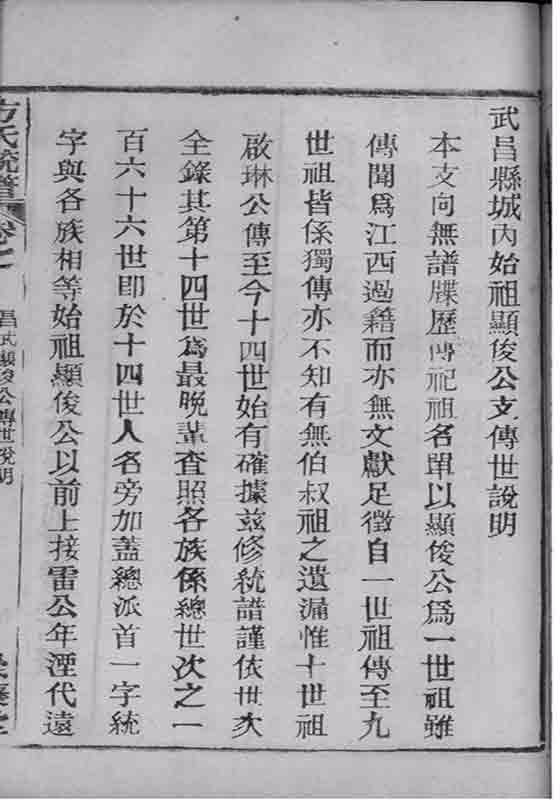 武昌縣城內始祖顯俊公支傳世說明
本支向無譜牒歷傳祀祖名單以顯俊公爲一世祖雖
傳聞爲江西過籍而亦無文獻足徵自一世祖傳至九
世祖皆係獨傳亦不知有無伯叔祖之遺漏惟十世祖
啟琳公傳至今十四世始有確據茲修統譜謹依世次
全錄其第十四世爲最晚輩査照各族係總世次之一
百六十六世即於十四世人名旁加蓋總派首一字統
字與各族相等始祖顯俊公以前上接雷公年湮代遠
方氏統譜 卷七
武昌顯俊公傳世說明